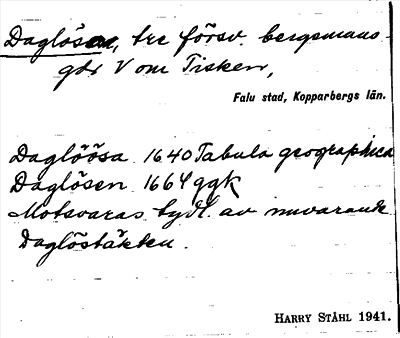 Daglösen, tre försv. bergsmans-
gdr V om Tisken,
Falu stad, Kopparbergs län.
Daglöösa 1640 Tabula geographica
Daglösen 1664 ggk
Motsvaras tydl. av nuvarande
Daglöstäkten.
HARRY STÅHL 1941.